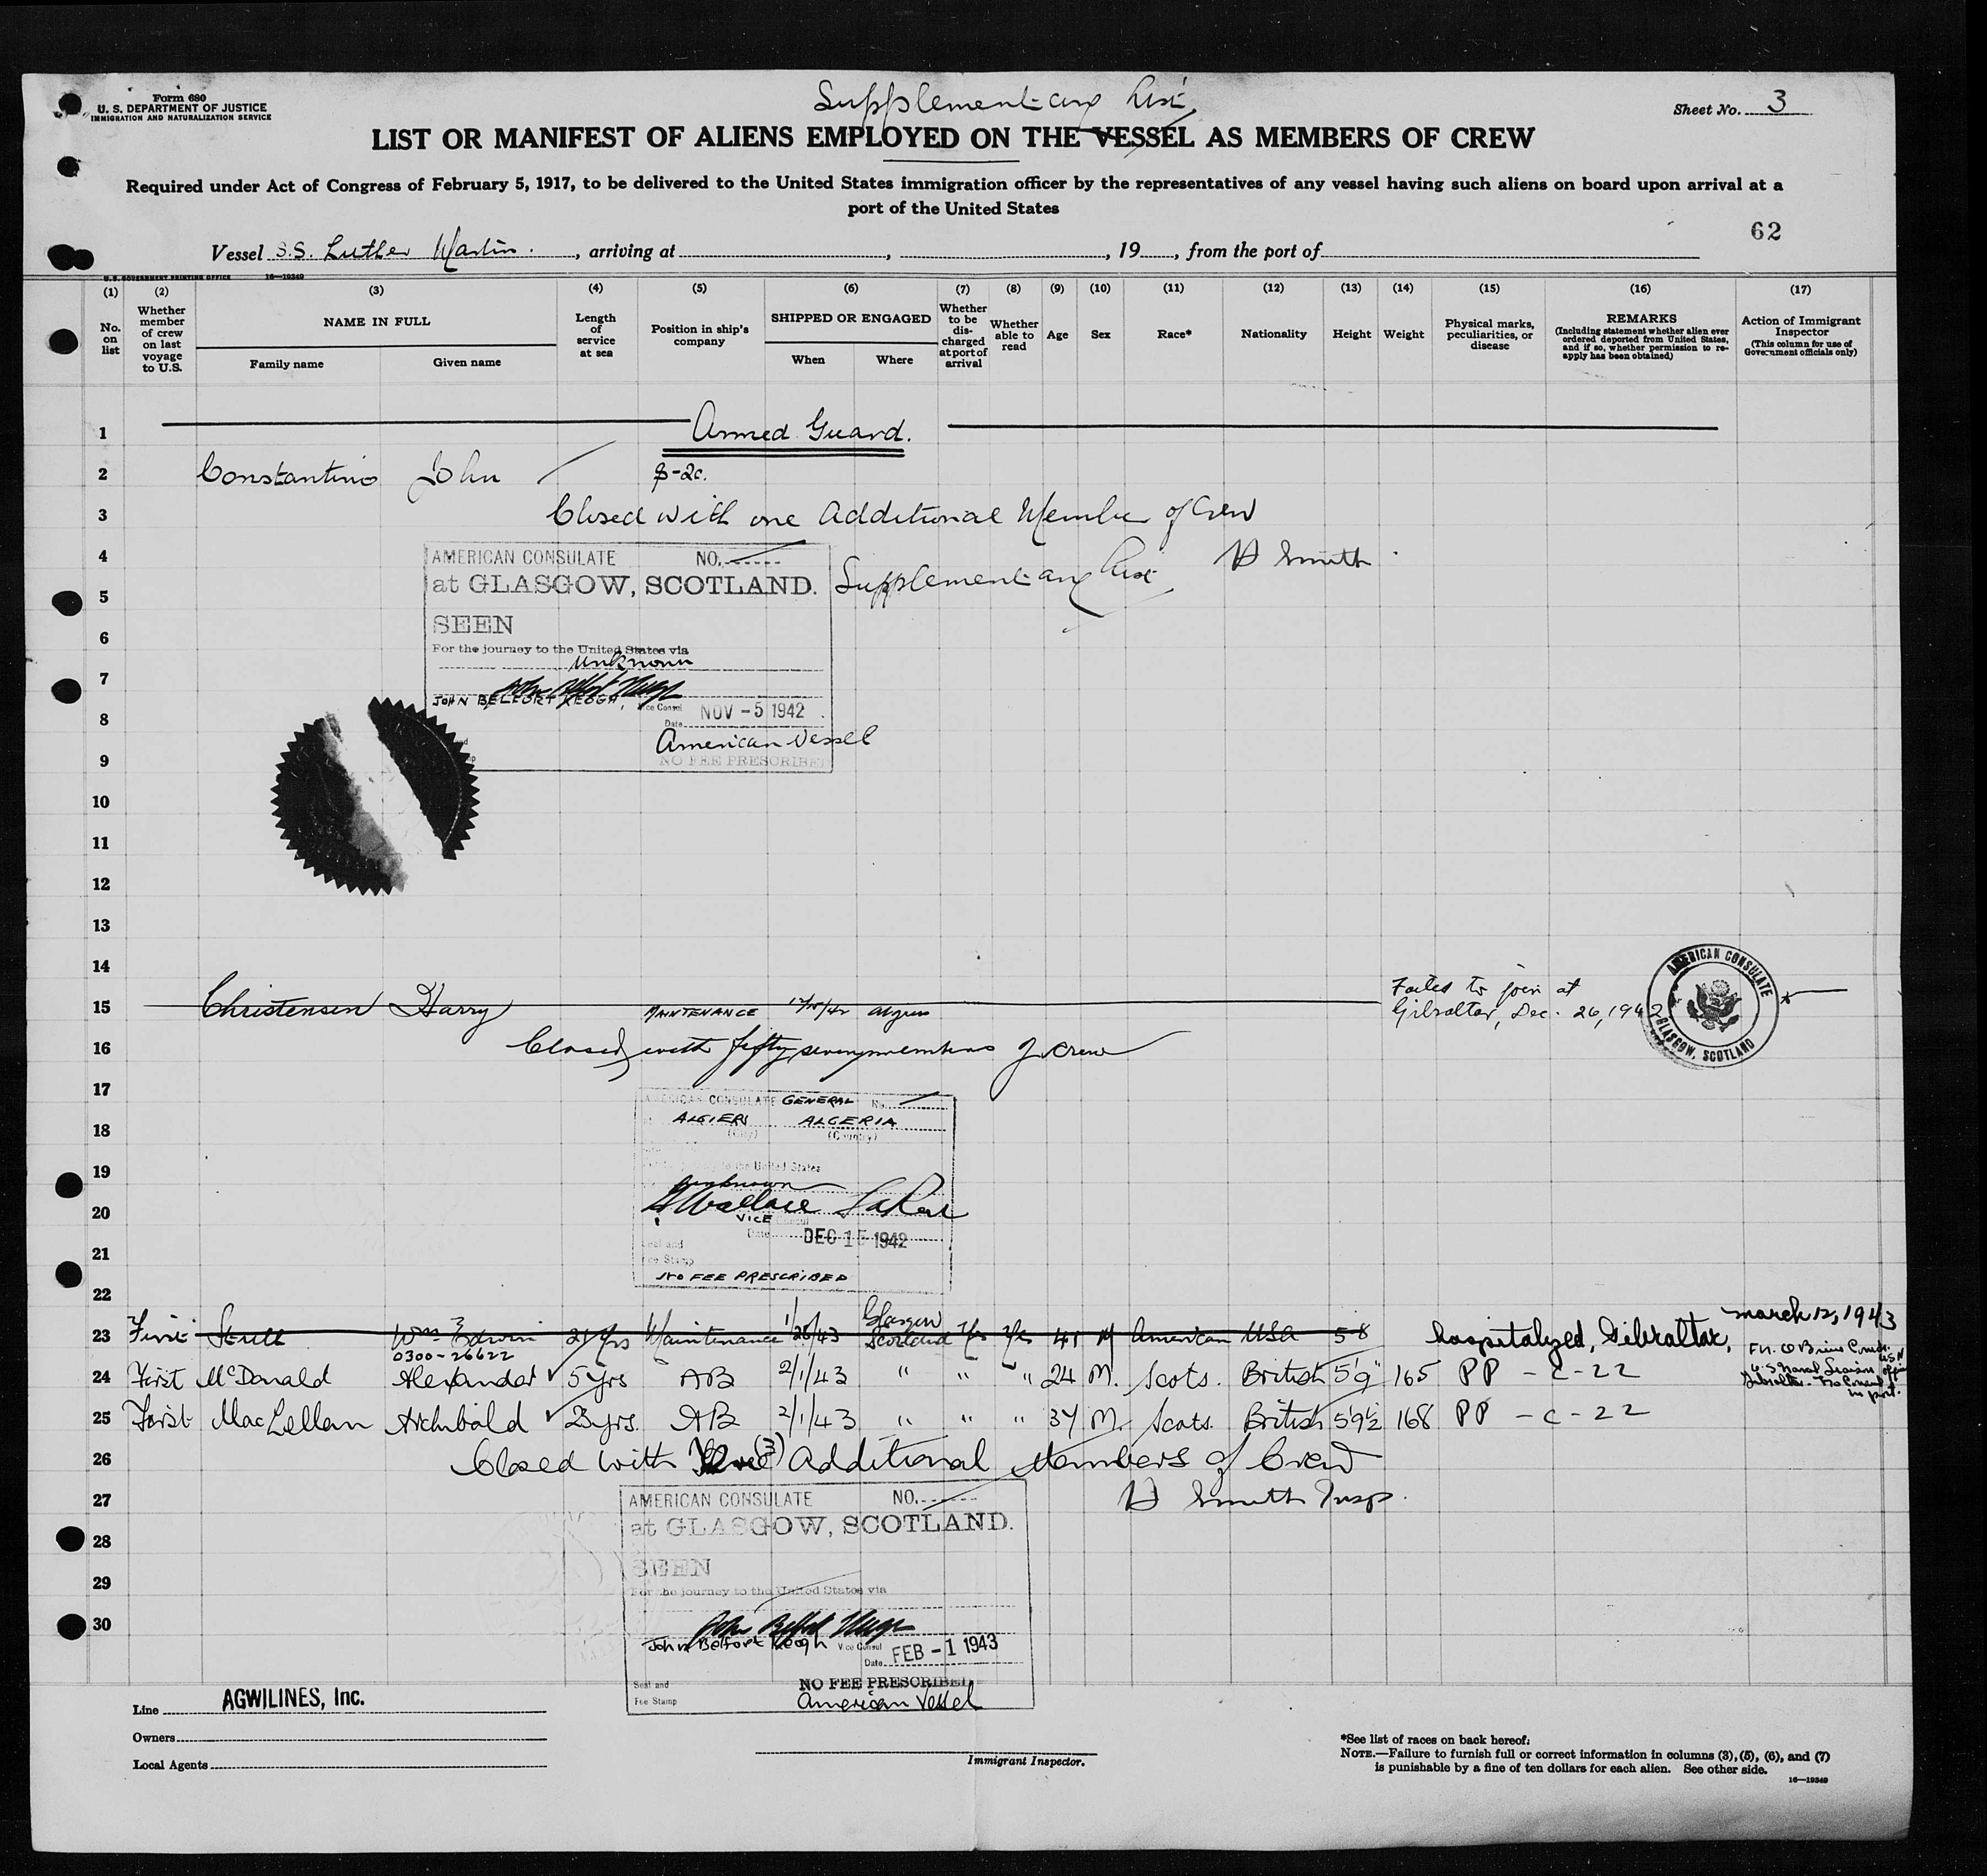 Form 680
U. S. DEPARTMENT OF JUSTICE
IMMIGRATION AND NATURALIZATION SERVICE
Supplementary List
Sheet No. 3
LIST OR MANIFEST OF ALIENS EMPLOYED ON THE VESSEL AS MEMBERS OF CREW
Required under Act of Congress of February 5, 1917, to be delivered to the United States immigration officer by the representatives of any vessel having such aliens on board upon arrival at a
port of the United States
62
Vessel S.S. Luther Martin. , arriving at , , 19 , from the port of
U. S. GOVERNMENT PRINTING OFFICE 16—19349
(1) (2) (3) (4) (5) (6) (7) (8) (9) (10) (11) (12) (13) (14) (15) (16) (17)
No. on list
Whether member of crew on last voyage to U.S.
NAME IN FULL
Family name Given name
Length of service at sea
Position in ship's company
SHIPPED OR ENGAGED
When Where
Whether to be discharged at port of arrival
Whether able to read
Age
Sex
Race*
Nationality
Height
Weight
Physical marks, peculiarities, or disease
REMARKS
(Including statement whether alien ever ordered deported from United States, and if so, whether permission to reapply has been obtained)
Action of Immigrant Inspector
(This column for use of Government officials only)
1 Armed Guard.
2 Constantino John S-2c.
3 Closed with one Additional Member of Crew
4 AMERICAN CONSULATE NO. H Smith
5 at GLASGOW, SCOTLAND. Supplementary List
6 SEEN
For the journey to the United States via
unknown
7
JOHN BELFORT KEOGH, Vice Consul
8 Date NOV - 5 1942
American Vessel
9 NO FEE PRESCRIBED
10
11
12
13
14
15 Christensen Harry MAINTENANCE 12/15/42 Algiers Failed to join at
Gibraltar, Dec. 26, 1942
AMERICAN CONSULATE
GLASGOW, SCOTLAND
16 Closed with fifty seven members of crew
17 AMERICAN CONSULATE GENERAL No.
18 ALGIERS ALGERIA
(City) (Country)
19 to the United States
unknown
20 Wallace
VICE Consul
21 Date DEC 15 1942
Seal and
Fee Stamp
NO FEE PRESCRIBED
22
23 First Wm Edwin 21 yrs Maintenance 1/28/43 Glasgow Scotland Yes Yes 41 M American USA 5 8 hospitalized, Gibraltar, March 12, 1943
0300-26622
24 First McDonald Alexander 5 yrs AB 2/1/43 " " " 24 M. Scots. British 5'9" 165 PP - C-22
25 First MacLellan Archibald 23 yrs. AB 2/1/43 " " " 37 M. Scots. British 5'9½ 168 PP - C-22
26 Closed with Three (3) Additional Members of Crew
27 H Smith Insp.
AMERICAN CONSULATE NO.
at GLASGOW, SCOTLAND.
28 SEEN
29 For the journey to the United States via
30
John Belfort Keogh Vice Consul
Date FEB - 1 1943
Seal and
Fee Stamp
NO FEE PRESCRIBED
American Vessel
Line AGWILINES, Inc.
Owners
Local Agents
Immigrant Inspector.
*See list of races on back hereof.
NOTE.—Failure to furnish full or correct information in columns (3), (5), (6), and (7)
is punishable by a fine of ten dollars for each alien. See other side.
16—19349